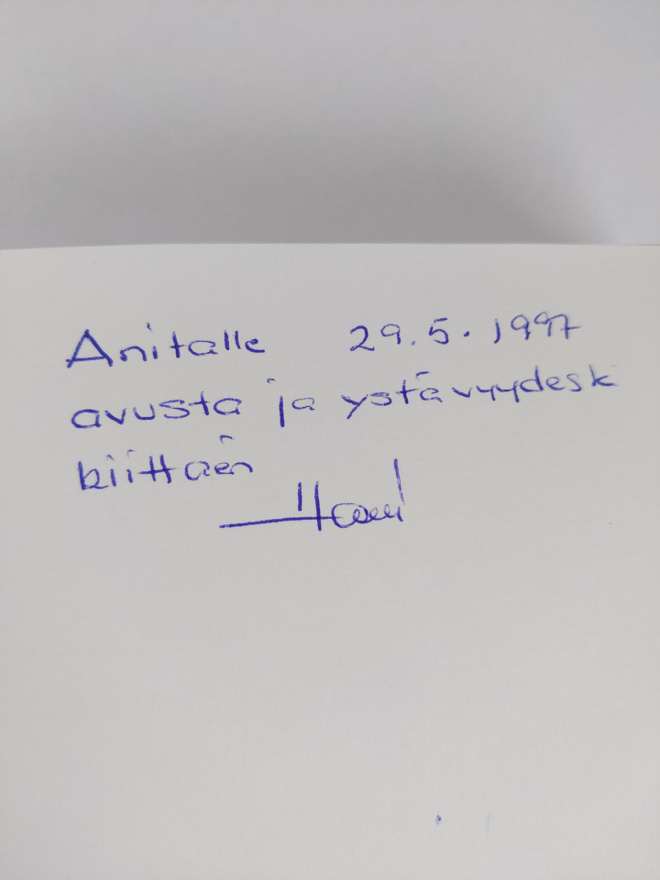 Anitalle 29.5.1997
avusta ja ystävyydesk
kiittäen